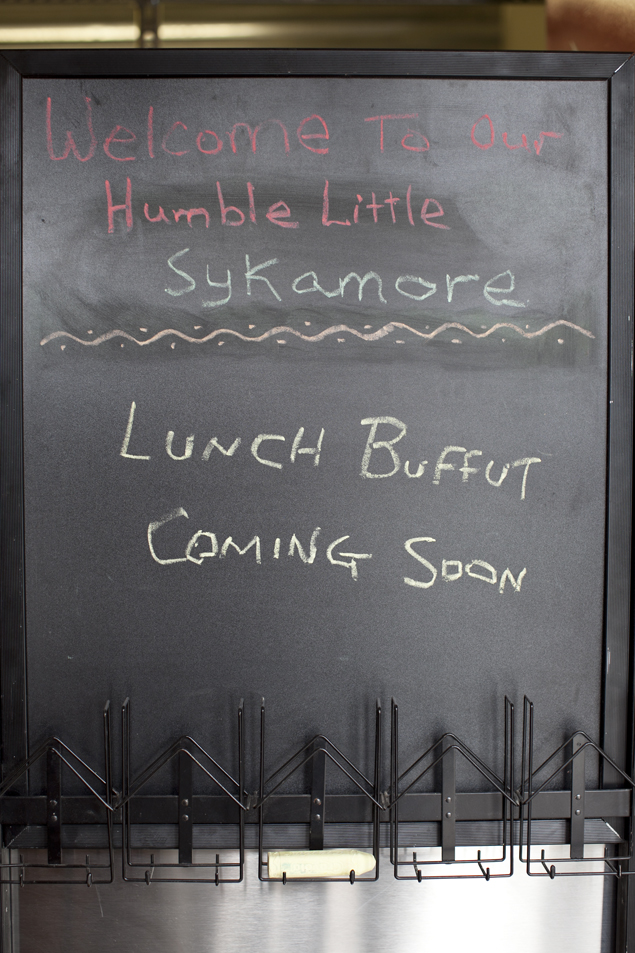 Welcome To Our
Humble Little
Sykamore
LUNCH BUFFUT
COMING SOON